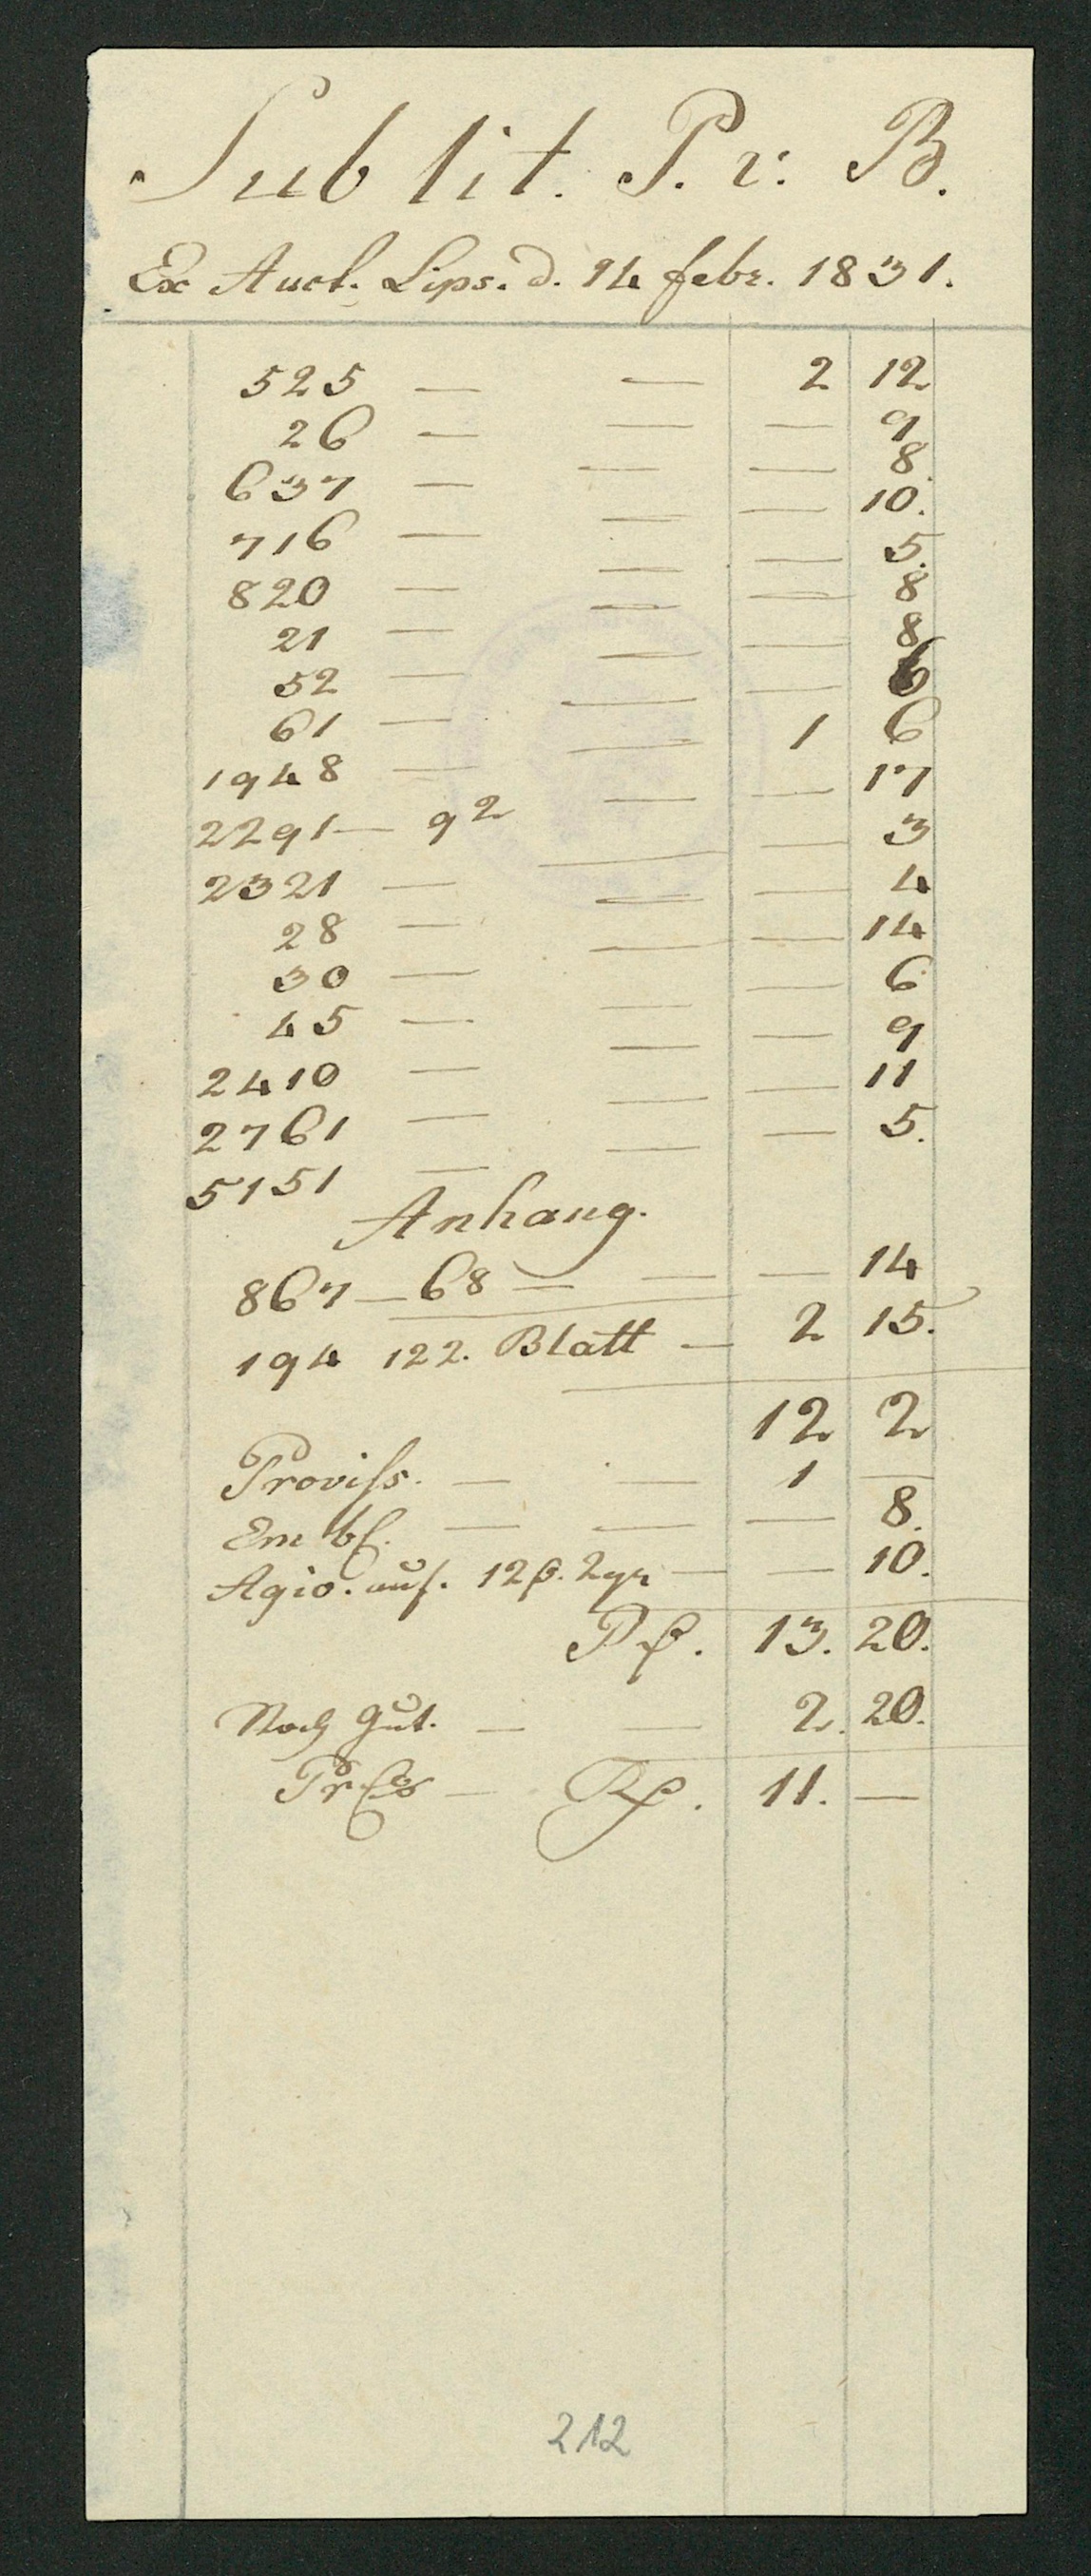 Sub lit. P. v: B.
Ex Auct. Lips. d. 14 febr. 1831.
525 — — 2 12
26 — — — 9
637 — — — 8.
716 — — — 10.
820 — — — 5.
21 — — — 8
52 — — — 8
61 — — — 6
1948 — — 1 6
2291 — 92 — — 17
2321 — — — 3
28 — — — 4
30 — — — 14
45 — — — 6
2410 — — — 9
2761 — — — 11
5151 — — — 5.
Anhang.
867 — 68 — — — 14
194 122. Blatt — 2 15.
12 2
Proviss. — — 1 —
— — — 8.
Agio. auf. 12 2 gr — — 10.
13. 20.
Noch Gut. — — 2. 20.
— 11. —
212